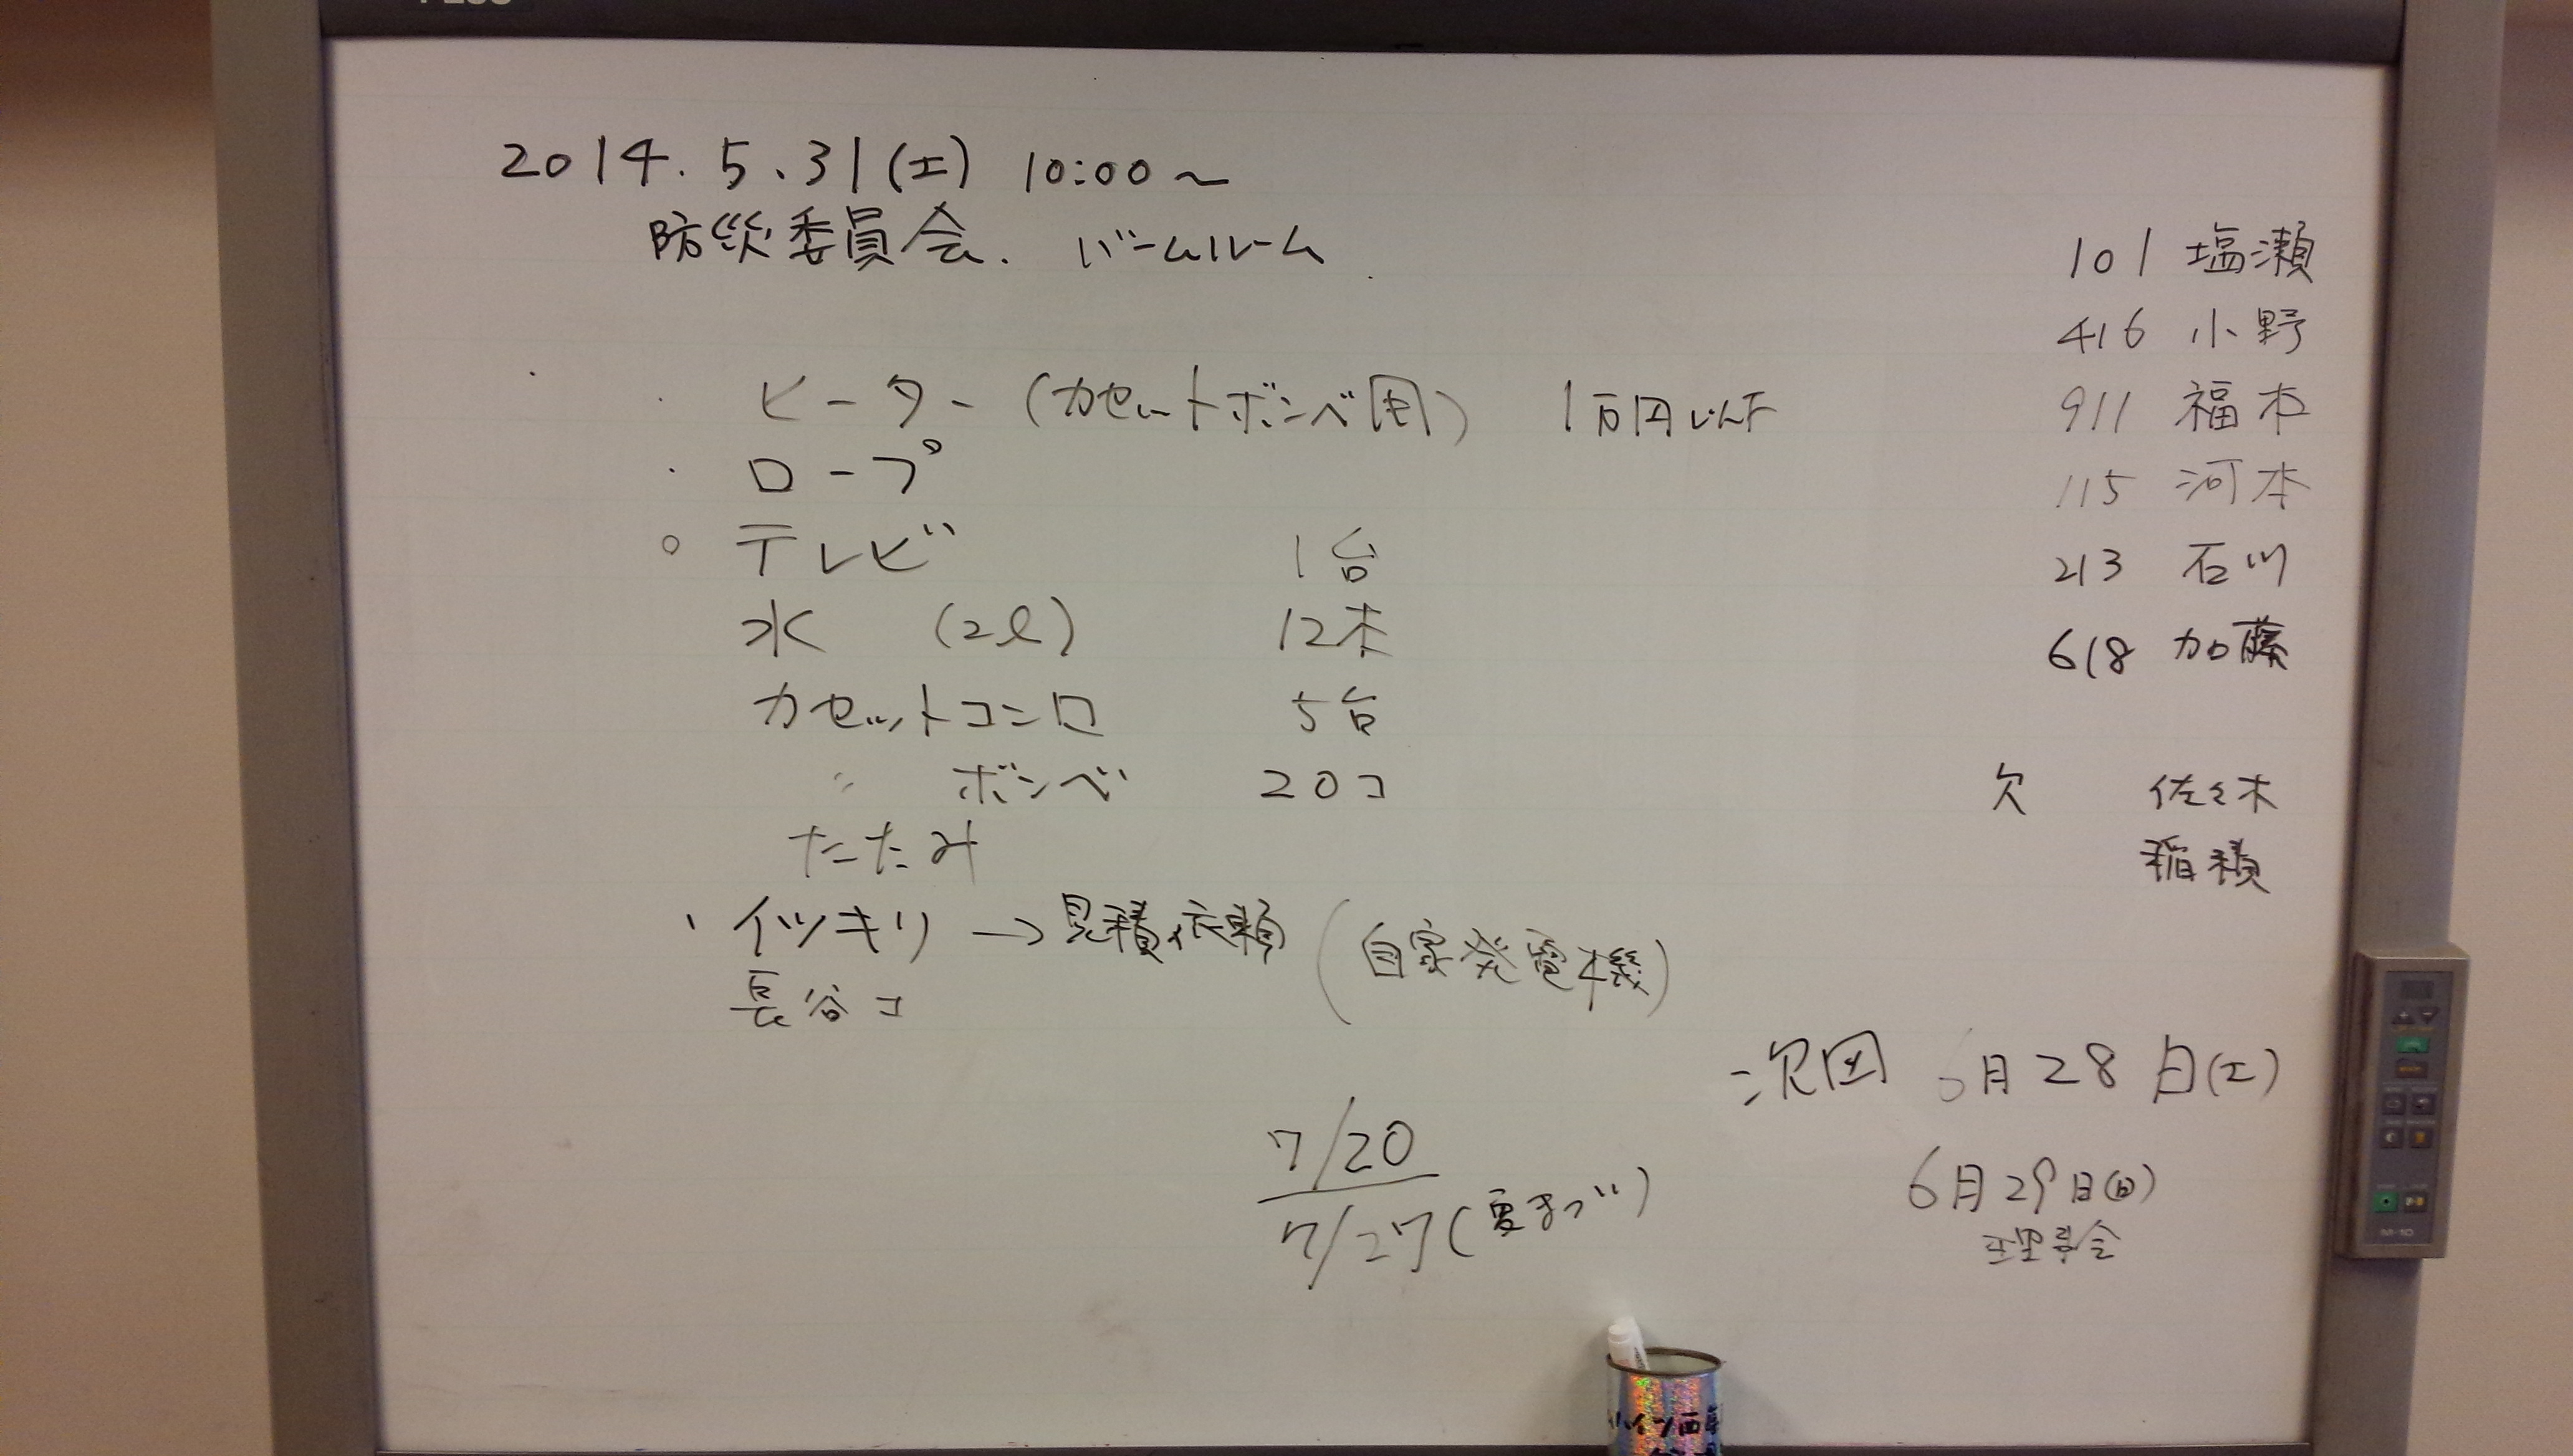 2014.5.31(土) 10:00～
防災委員会. パームルーム
101 塩瀬
416 小野
911 福本
115 河本
213 石川
618 加藤
欠 佐々木
稲積
・ヒーター(カセットボンベ用) 1万円以下
・ロープ
○ テレビ 1台
水 (2ℓ) 12本
カセットコンロ 5台
〃 ボンベ 20コ
たたみ
・イツキリ → 見積依頼 (自家発電機)
長谷コ
次回 6月28日(土)
7/20
7/27(夏まつり)
6月29日(日)
理事会
M-10